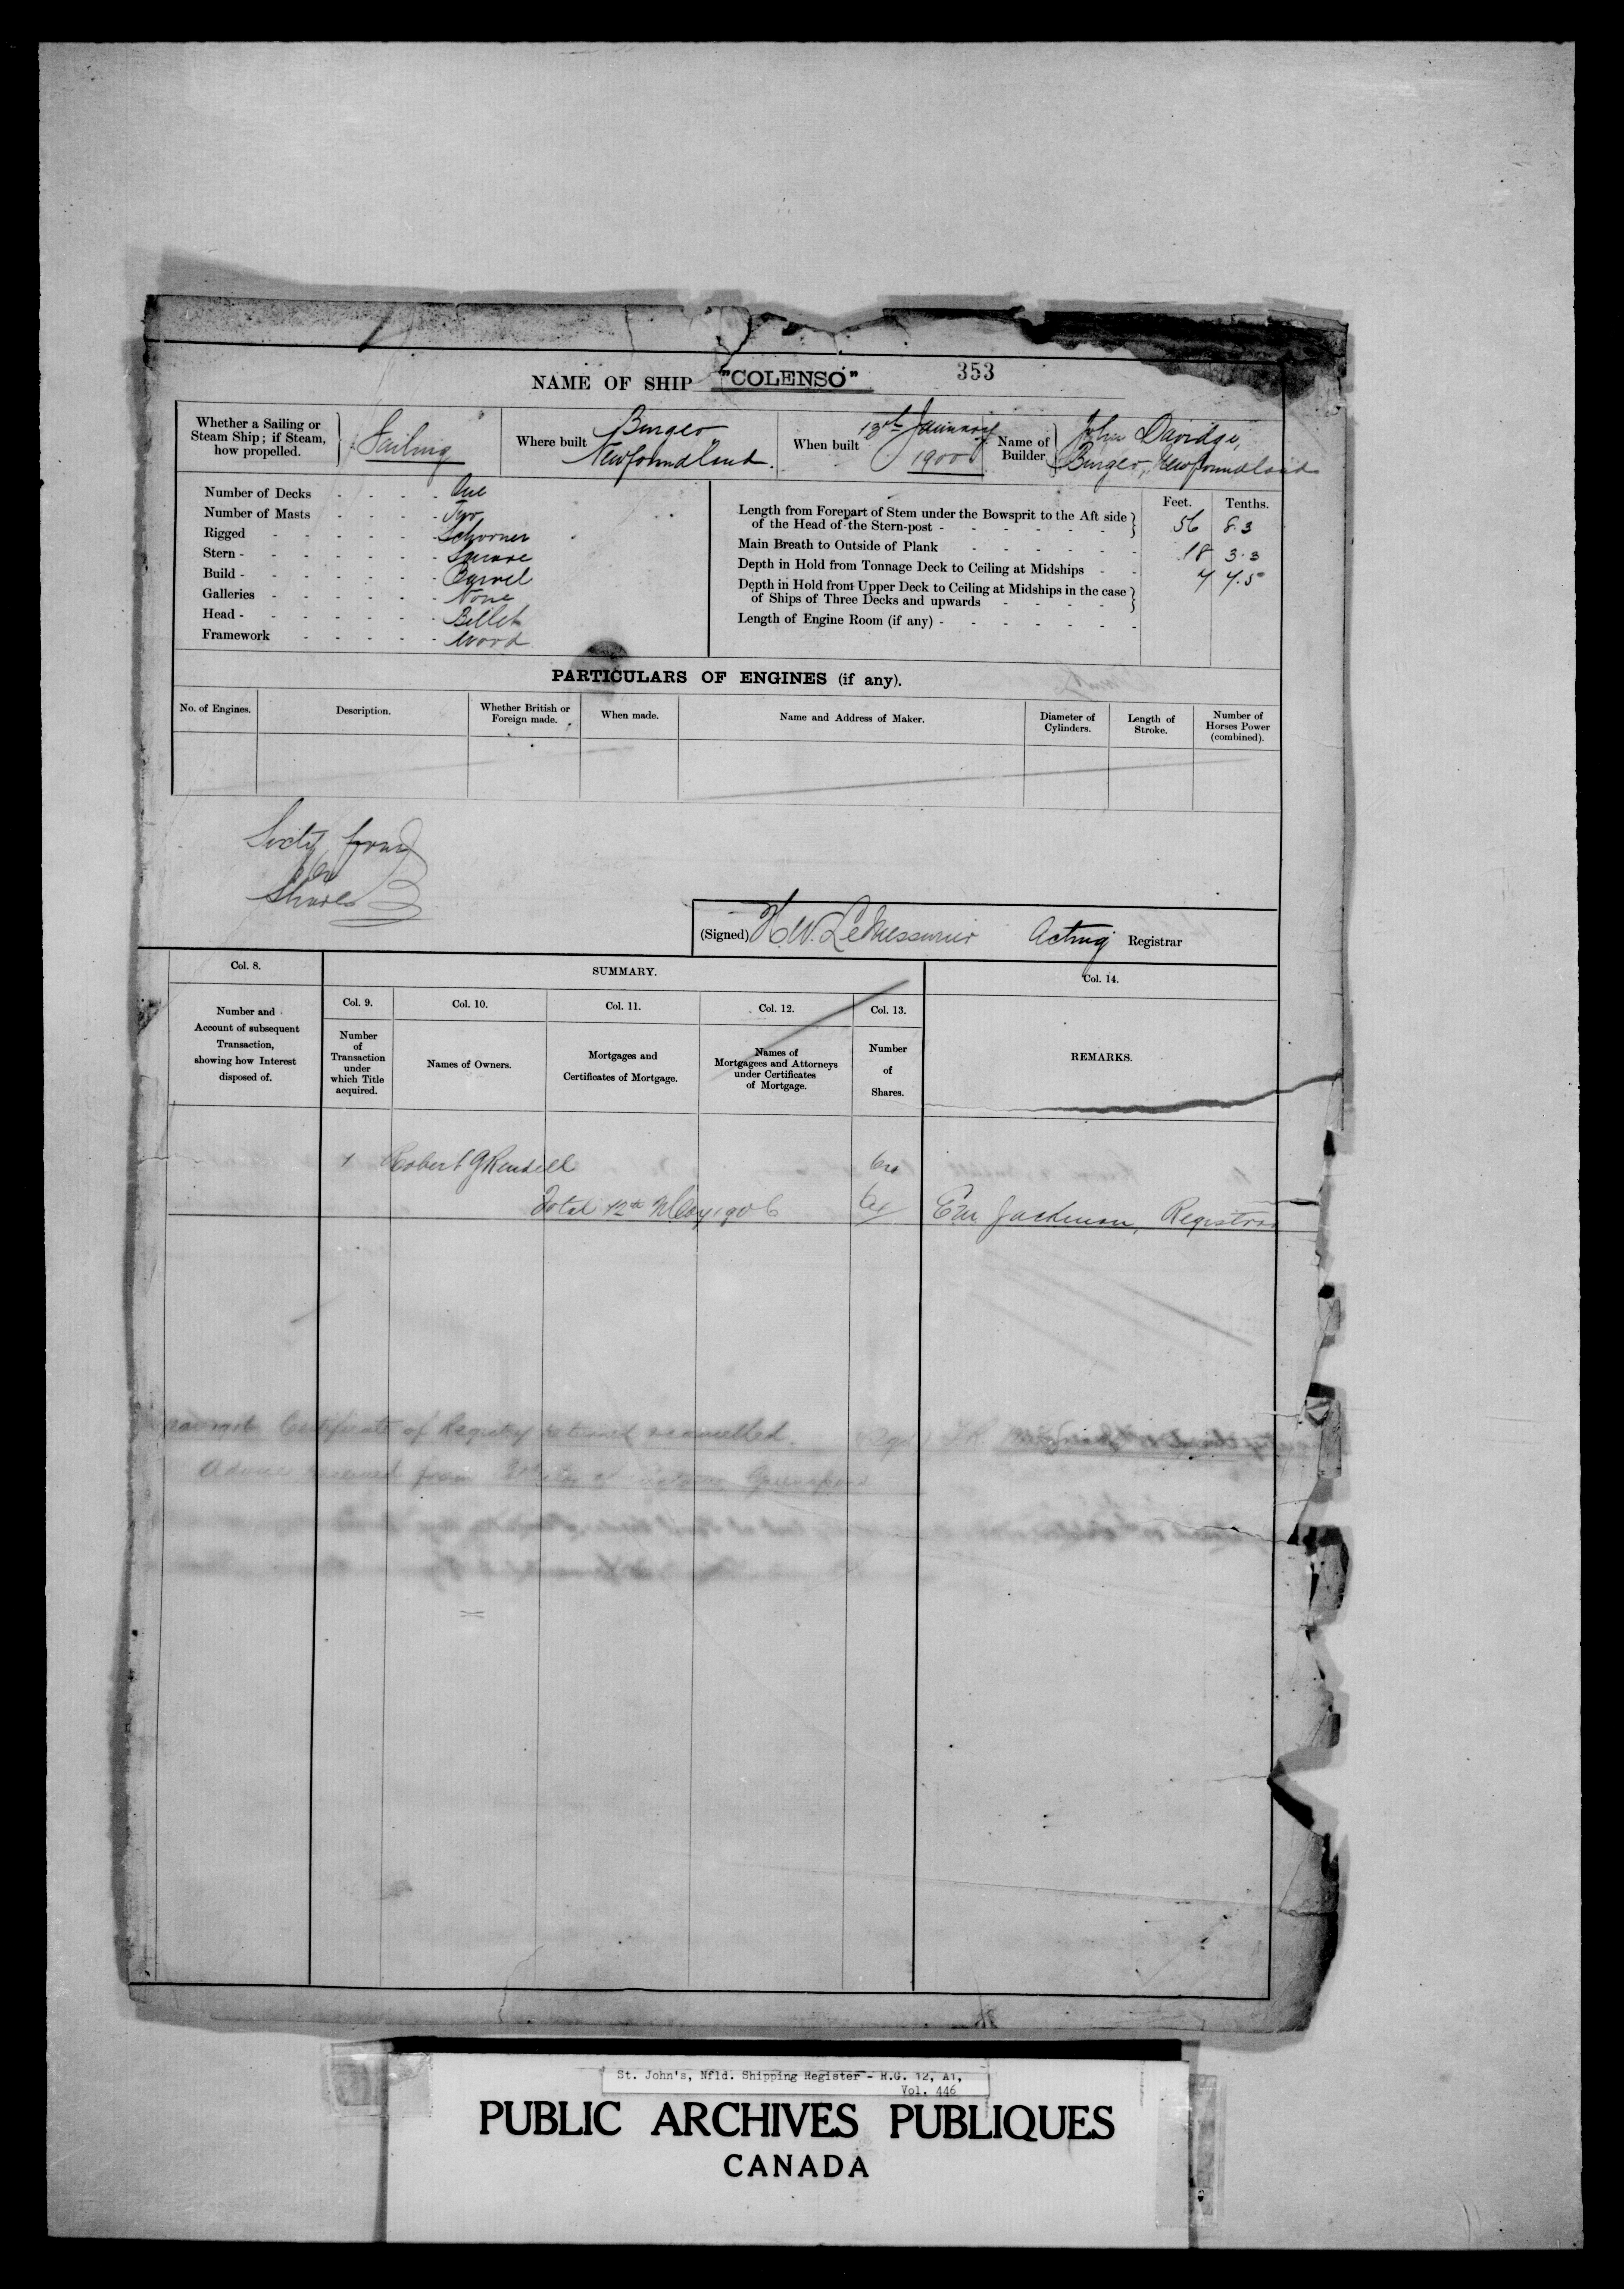 NAME OF SHIP "COLENSO" 353
Whether a Sailing or
Steam Ship; if Steam,
how propelled.
Sailing
Where built
Burgeo
Newfoundland.
When built
January
1900
Name of
Builder
John Davidge,
Burgeo, Newfoundland
Number of Decks - - - - One
Number of Masts - - - - Two
Rigged - - - - - - Schooner
Stern - - - - - - - Square
Build - - - - - - - Carvel
Galleries - - - - - - None
Head - - - - - - - Billet
Framework - - - - - Wood
Feet. Tenths.
Length from Forepart of Stem under the Bowsprit to the Aft side
of the Head of the Stern-post - - - - - - 56 8.3
Main Breath to Outside of Plank - - - - - - 18 3.3
Depth in Hold from Tonnage Deck to Ceiling at Midships - - 7 7.5
Depth in Hold from Upper Deck to Ceiling at Midships in the case
of Ships of Three Decks and upwards - - - -
Length of Engine Room (if any) - - - - - - -
PARTICULARS OF ENGINES (if any).
No. of Engines.
Description.
Whether British or
Foreign made.
When made.
Name and Address of Maker.
Diameter of
Cylinders.
Length of
Stroke.
Number of
Horses Power
(combined).
Sixty four
64
Shares
(Signed) H.W. LeMessurier Acting Registrar
Col. 8.
Number and
Account of subsequent
Transaction,
showing how Interest
disposed of.
SUMMARY.
Col. 9.
Number
of
Transaction
under
which Title
acquired.
Col. 10.
Names of Owners.
Col. 11.
Mortgages and
Certificates of Mortgage.
Col. 12.
Names of
Mortgagees and Attorneys
under Certificates
of Mortgage.
Col. 13.
Number
of
Shares.
Col. 14.
REMARKS.
1 Robert G Rendell 64
Total 12th May 1906 64 Jackman, Registrar
Certificate of Registry returned & cancelled.
Advice received from
St. John's, Nfld. Shipping Register - R.G. 12, A1,
Vol. 446
PUBLIC ARCHIVES PUBLIQUES
CANADA